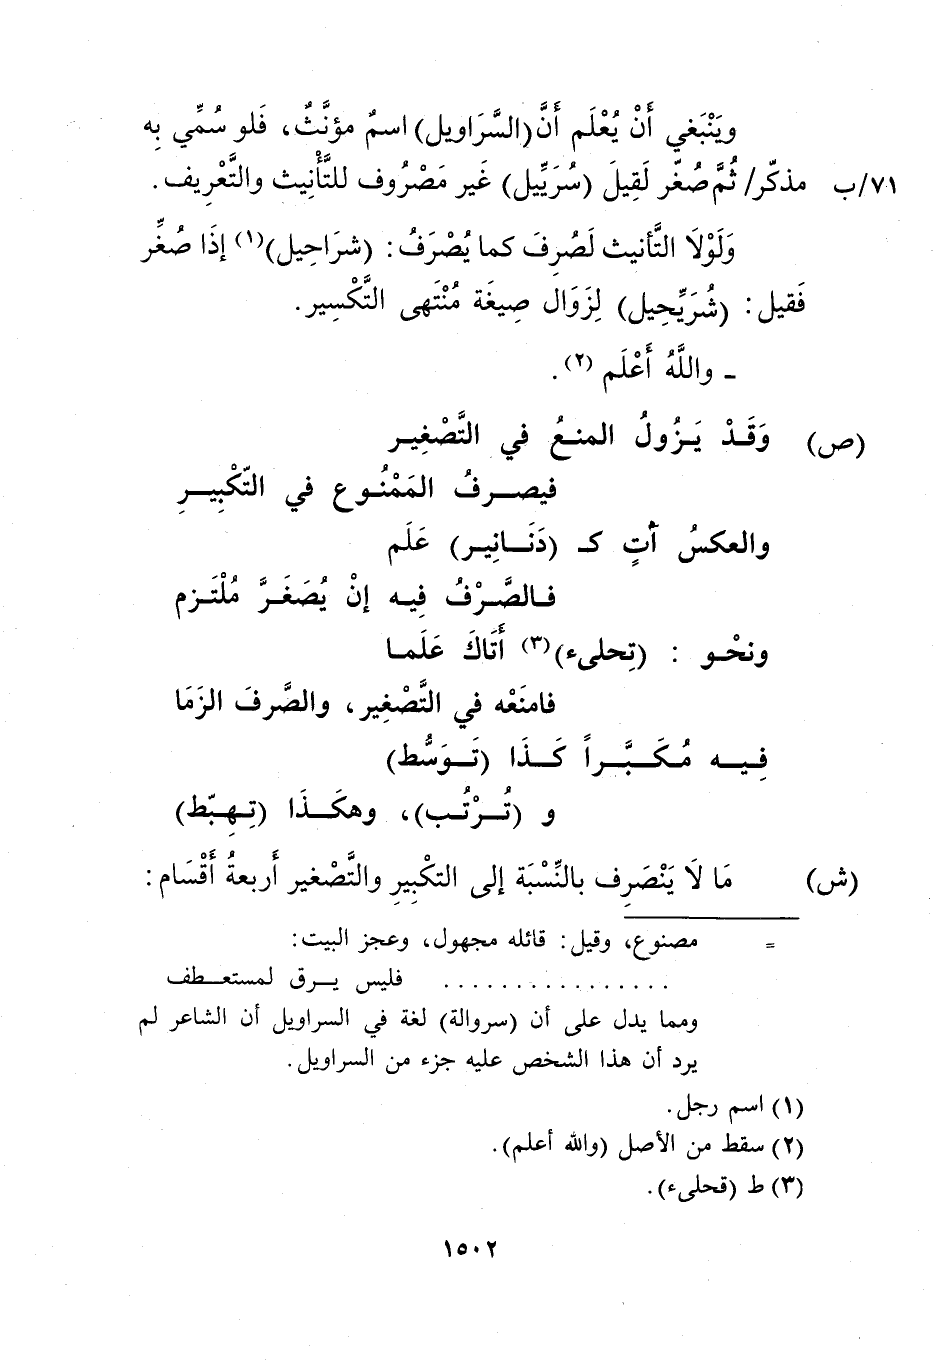 ويَنْبَغي أَنْ يُعْلَم أَنَّ (السَّرَاويل) اسمٌ مؤنَّثٌ، فَلو سُمِّي بِه
٧١/ب مذكّر/ ثُمَّ صُغّر لَقِيلَ (سُرَيِّيل) غَير مَصْروف للتَّأْنيث والتَّعْريف.
وَلَوْلَا التَّأنيث لَصُرِفَ كما يُصْرَفُ: (شرَاحِيل)(١) إذَا صُغِّر
فَقيل: (شُرَيِّحِيل) لِزَوَال صِيغَة مُنْتَهى التَّكْسِير.
ـ واللَّهُ أَعْلَم (٢).
(ص) وَقَـدْ يَـزُولُ المنـعُ في التَّصْغِيـر
فيصـرفُ المَمْنُـوع في التّكْبِيـرِ
والعكسُ آتٍ كـ (دَنَـانِيـر) عَلَم
فـالصَّـرْفُ فِيـه إنْ يُصَغَـرَّ مُلْتَـزم
ونحْـو : (تِحلىء)(٣) أَتَاكَ عَلَمـا
فامنَعْه في التَّصْغِير، والصَّرفَ الزَمَا
فِيــه مُـكَـبَّـراً كَـذَا (تَـوَسُّط)
و (تُـرْتُـب)، وهكَـذَا (تِـهِبّط)
(ش) مَا لَا يَنْصَرِف بالنِّسْبَة إلى التكْبِير والتَّصْغير أَربعةُ أَقْسَام:
= مصنوع، وقيل: قائله مجهول، وعجز البيت:
. . . . . . . . . . . . . . . . فليس يـرق لمستعـطف
ومما يدل على أن (سروالة) لغة في السراويل أن الشاعر لم
يرد أن هذا الشخص عليه جزء من السراويل.
(١) اسم رجل.
(٢) سقط من الأصل (والله أعلم).
(٣) ط (قحلىء).
١٥٠٢